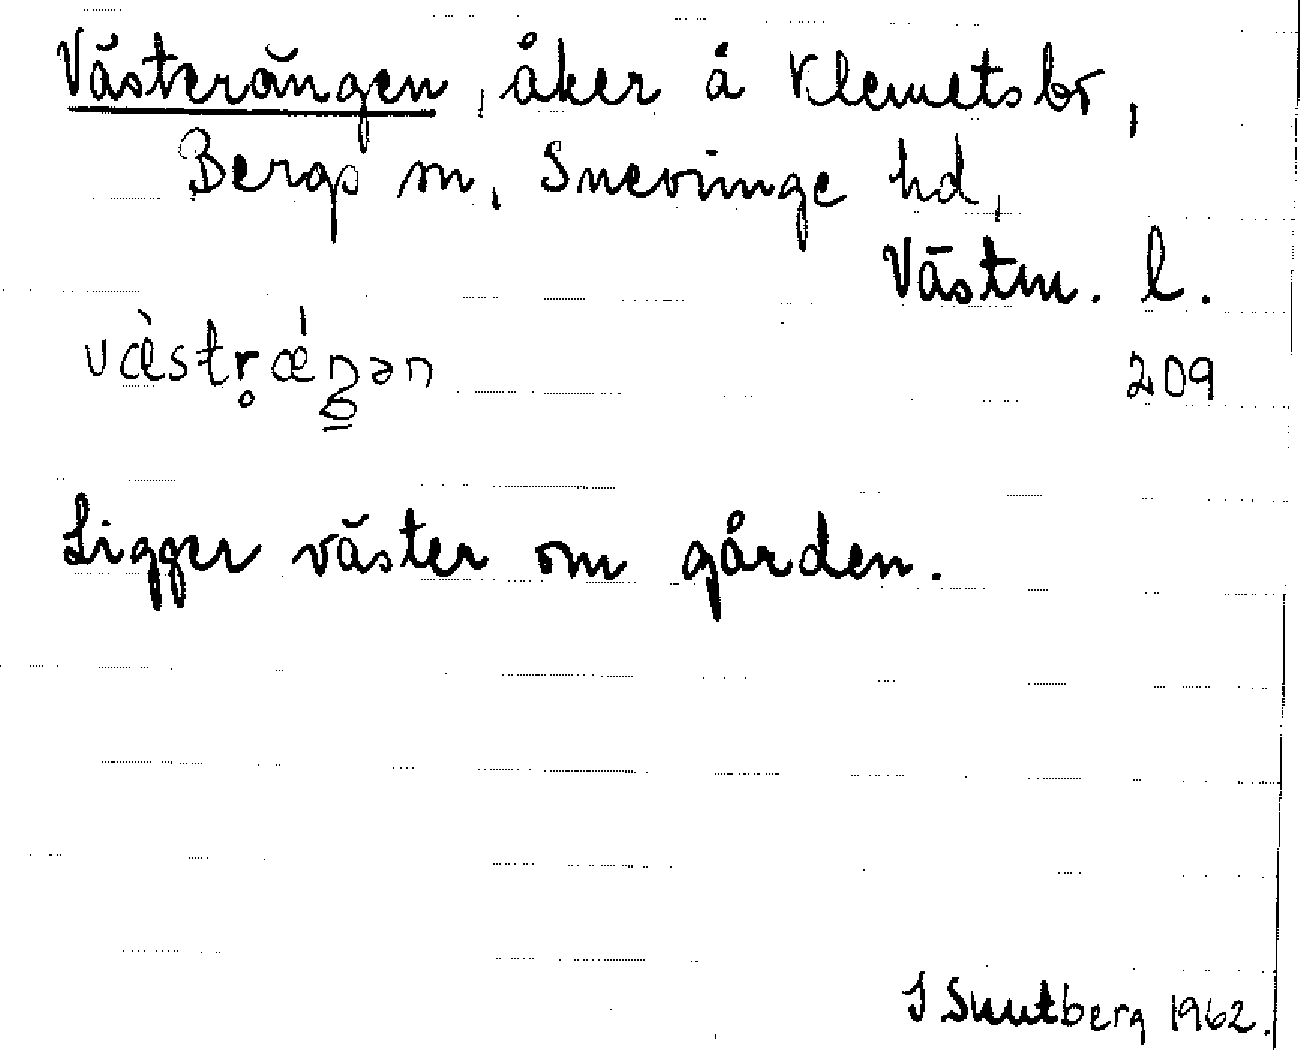 Västerängen, åker å Klemetsbo,
Bergs sn, Snevringe hd,
Västm. l.
væ̀str̥ǽŋən
209
Ligger väster om gården.
1962.